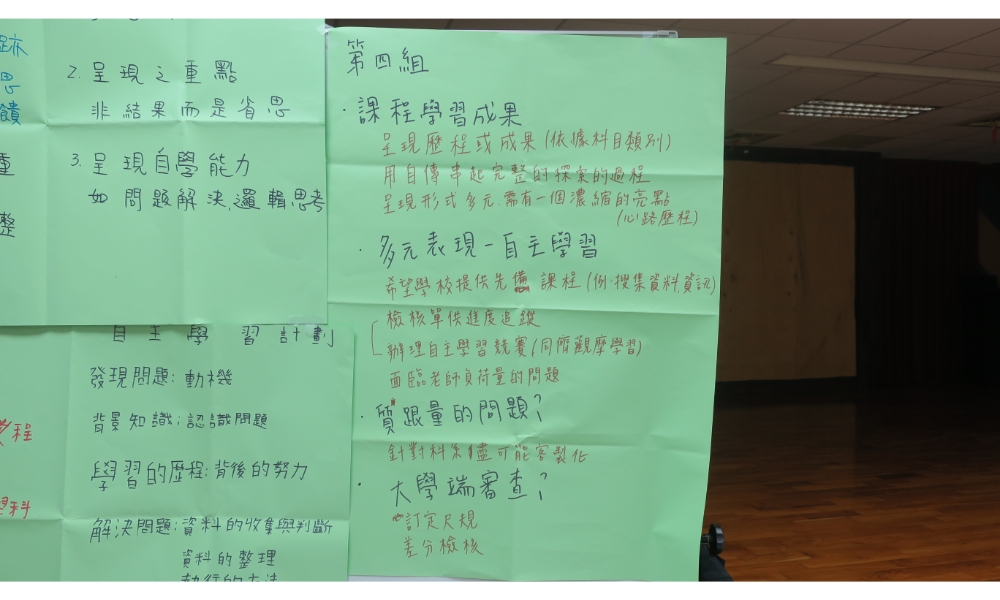 跡
思
饋
重
整
程
學科
2. 呈現之重點
非結果而是省思
3. 呈現自學能力
如 問題解決、邏輯思考
自主學習計劃
發現問題:動機
背景知識:認識問題
學習的歷程:背後的努力
解決問題:資料的收集與判斷
資料的整理
執行的方法
第四組
·課程學習成果
呈現歷程或成果(依據科目類別)
用自傳串起完整的探索的過程
呈現形式多元,需有一個濃縮的亮點
(心路歷程)
·多元表現-自主學習
希望學校提供先備課程(例:搜集資料,資訊)
檢核單供進度追蹤
辦理自主學習競賽(同儕觀摩學習)
面臨老師負荷量的問題
·質跟量的問題?
針對科系儘可能客製化
·大學端審查?
訂定尺規
差分檢核